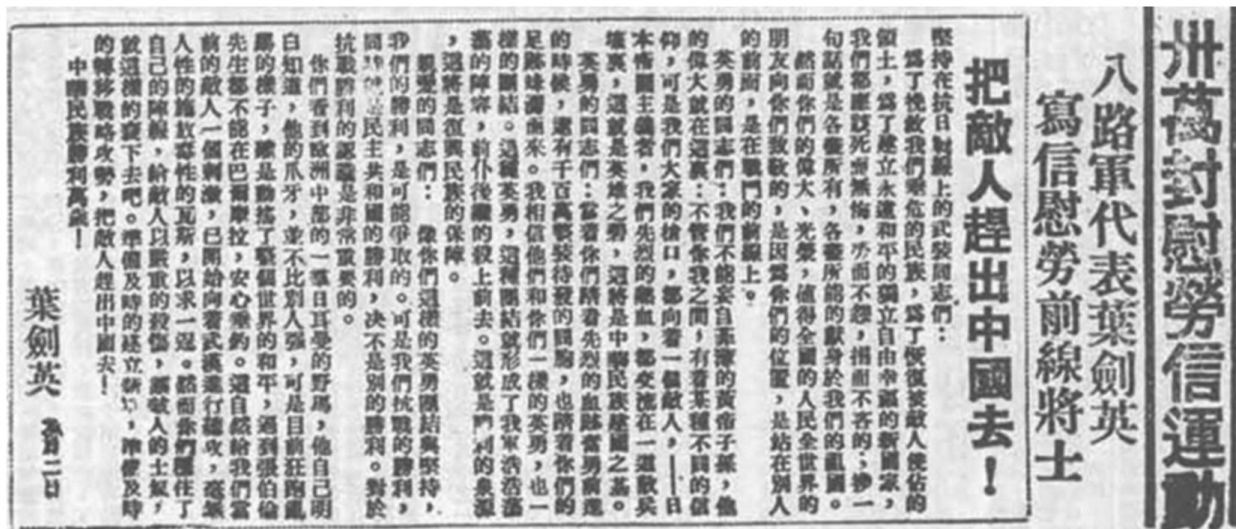 卅萬封慰勞信運動
八路軍代表葉劍英
寫信慰勞前線將士
把敵人趕出中國去！
堅持在抗日線上的武裝同志們：
爲了挽救我們垂危的民族，爲了恢復被敵人侵佔的
領土，爲了建立永遠和平的獨立自由幸福的新國家，
我們都應該死而無悔，勞而不怨，捐而不吝的；換一
句話就是各盡所有，各盡所能的獻身於我們的祖國。
然而你們的偉大、光榮，值得全國的人民全世界的
朋友向你們致敬的，是因爲你們的位置，是站在別人
的前面，是在戰鬥的前線上。
英勇的同志們：我們不能妄自菲薄的黃帝子孫，他
的偉大就在這裏：不管你我之間，有着某種不同的信
仰，可是我們大家的槍口，都向着一個敵人，——日
本帝國主義者，我們先烈的熱血，都交流在一道散兵
壕裏，這就是英雄之碧，這將是中華民族建國之基。
英勇的同志們：當着你們踏着先烈的血跡奮勇前進
的時候，還有千百萬整裝待發的同胞，也踏着你們的
足跡蜂湧而來。我相信他們和你們一樣的英勇，也一
樣的團結。這種英勇，這種團結就形成了我軍浩浩蕩
蕩的陣容，前仆後繼的殺上前去。這就是勝利的泉源
，這將是復興民族的保障。
親愛的同志們：像你們這樣的英勇團結與堅持，
我們的勝利，是可能爭取的。可是我們抗戰的勝利，
同時就是民主共和國的勝利，決不是別的勝利。對於
抗戰勝利的認識是非常重要的。
你們看到歐洲中部的一羣日耳曼的野馬，他自己明
白知道，他的爪牙，並不比別人強，可是目前狂跑亂
踢的樣子，確是動搖了整個世界的和平，逼到張伯倫
先生都不能在巴爾摩拉，安心垂釣。這自然給我們當
前的敵人一個刺激，已開始向着武漢進行總攻，毫無
人性的施放毒性的瓦斯，以求一逞。然而你們穩住了
自己的陣線，給敵人以嚴重的殺傷，敵人的士氣，
就這樣的衰下去吧。準備及時的建立，準備及時
的轉移戰略攻勢，把敵人趕出中國去！
中華民族勝利萬歲！
葉劍英 二日